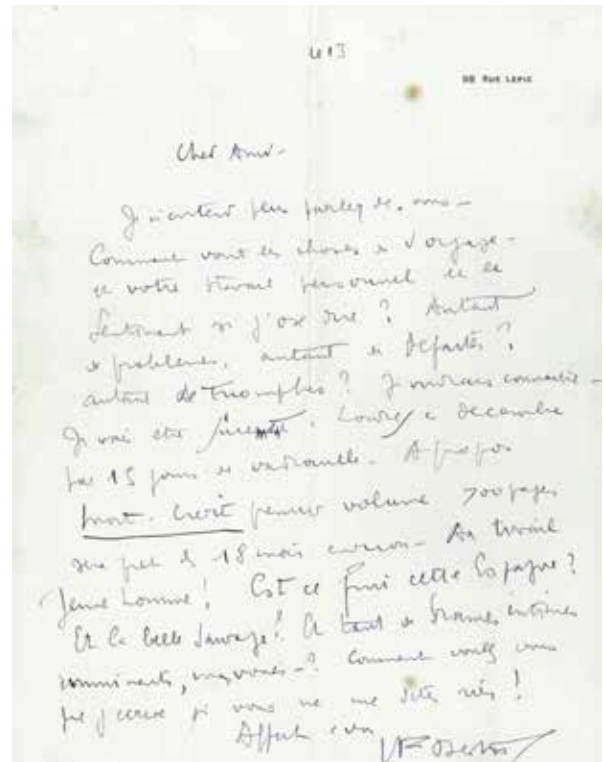 4 e 13
98 RUE LEPIC
Cher Ami -
Je n'entend plus parler de vous -
Comment vont les choses
et votre travail personnel et le
Sentiment si j'ose dire ? Autant
de problèmes, autant de défaites ?
autant de triomphes ? Je voudrais connaitre -
Je vais être à Londres en décembre
par 15 jours de vadrouille - A propos
Mort à crédit premier volume 700 pages
sera prêt ds 18 mois environ - Au travail
Jeune homme ! Est ce fini cette Espagne ?
Et la belle Sauvage ! Et tant de drames intimes
imminents, ? Comment voulez vous
que j'écrive si vous ne me dites rien !
Affect à vous